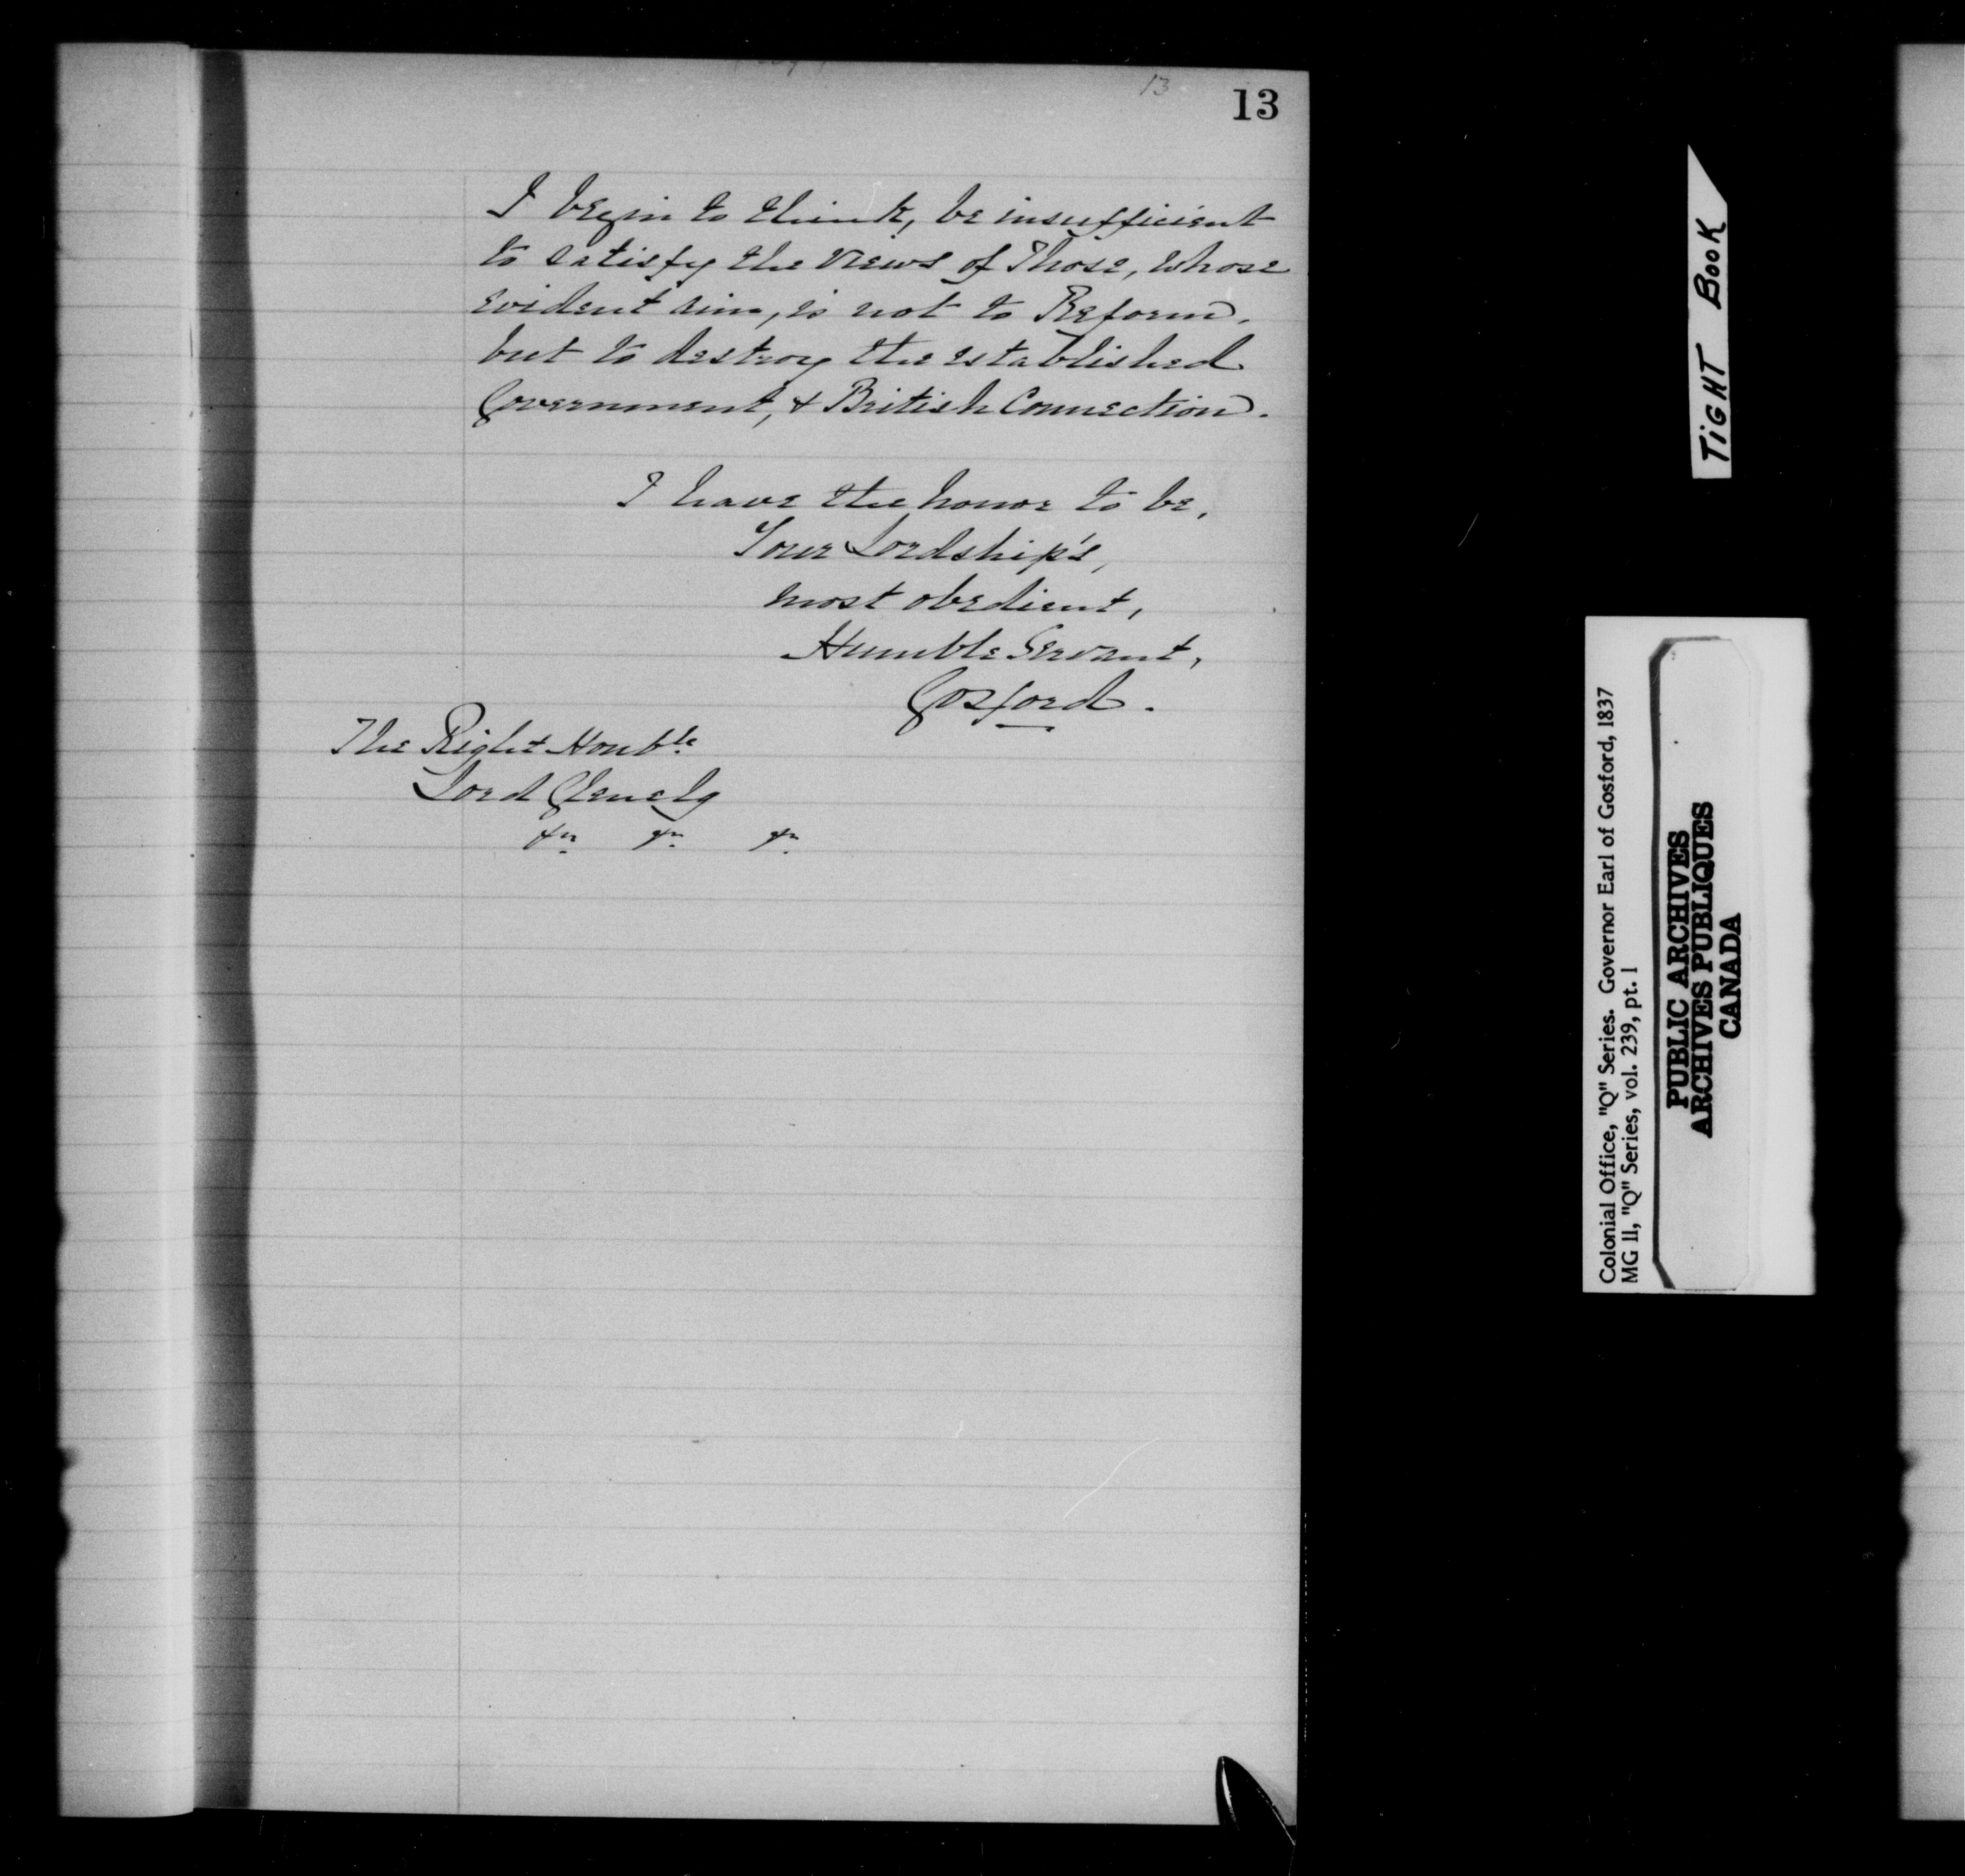 13
13
I begin to think, be insufficient
to satisfy the views of Those, whose
evident aim, is not to Reform,
but to destroy the established
Government, & British Connection.
I have the honor to be,
Your Lordship's,
most obedient,
Humble Servant,
Gosford.
The Right Honble
Lord Glenelg
&c &c &c
TIGHT BOOK
Colonial Office, "Q" Series. Governor Earl of Gosford, 1837
MG 11, "Q" Series, vol. 239, pt. 1
PUBLIC ARCHIVES
ARCHIVES PUBLIQUES
CANADA